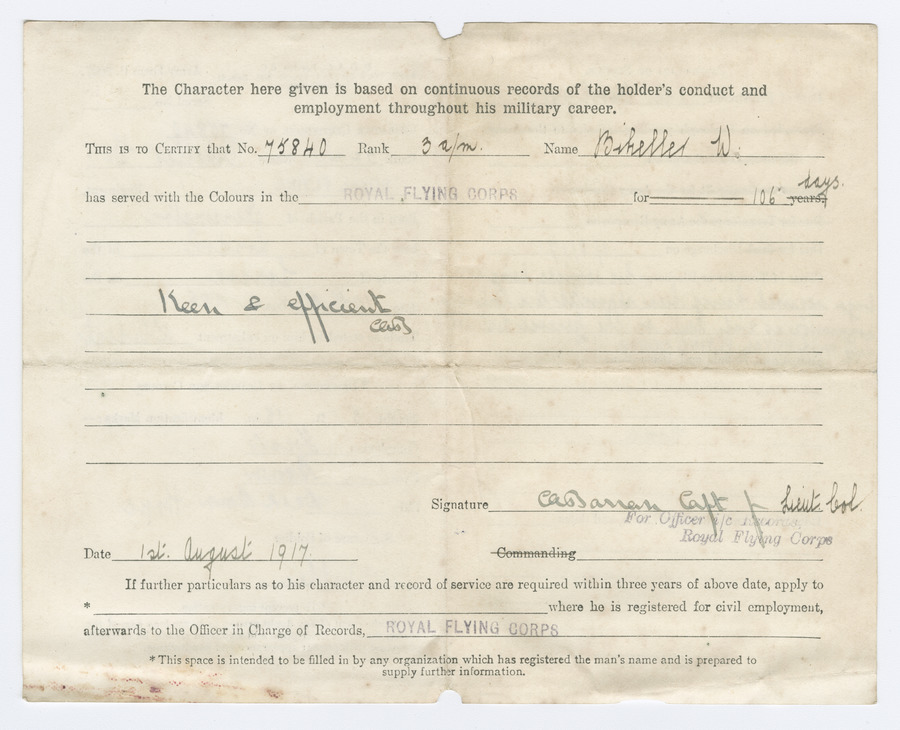 The Character here given is based on continuous records of the holder's conduct and
employment throughout his military career.
THIS IS TO CERTIFY that No. 75840 Rank 3 a/m. Name W.
has served with the Colours in the ROYAL FLYING CORPS for 106 years. days.
Keen & efficient
CAB
Signature Capt for Lieut. Col.
For Officer i/c Records,
Royal Flying Corps
Date 1st. August 1917. Commanding
If further particulars as to his character and record of service are required within three years of above date, apply to
* where he is registered for civil employment,
afterwards to the Officer in Charge of Records, ROYAL FLYING CORPS
* This space is intended to be filled in by any organization which has registered the man's name and is prepared to
supply further information.